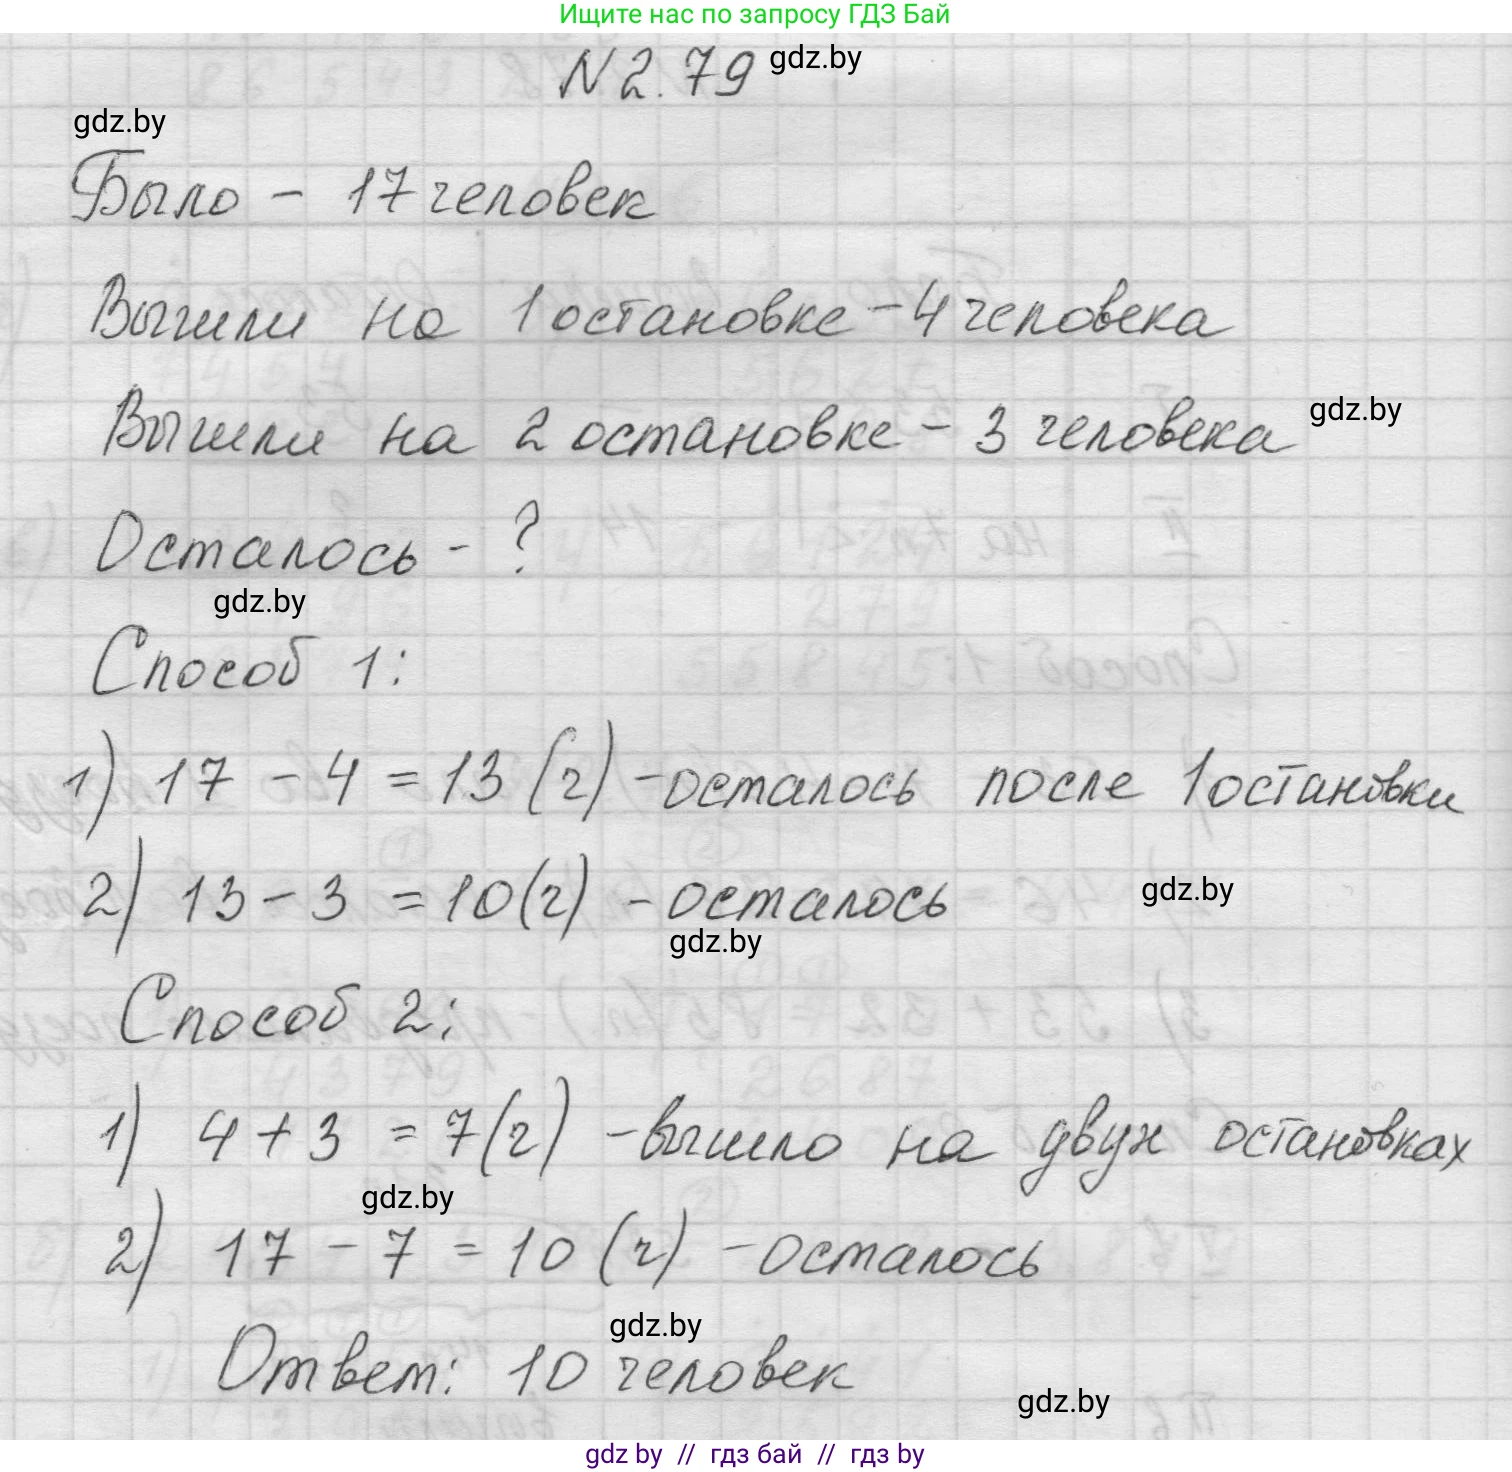 Ищите нас по запросу ГДЗ Бай
N 2.79 gdz.by
gdz.by
Было - 17 человек
Вышли на 1 остановке - 4 человека
Вышли на 2 остановке - 3 человека
gdz.by
Осталось - ?
gdz.by
Способ 1:
1) 17 - 4 = 13 (ч) - осталось после 1 остановки
2) 13 - 3 = 10 (ч) - осталось
gdz.by
gdz.by
Способ 2:
1) 4 + 3 = 7 (ч) - вышло на двух остановках
gdz.by
2) 17 - 7 = 10 (ч) - осталось
gdz.by
Ответ: 10 человек
gdz.by
gdz by // гдз бай // гдз by